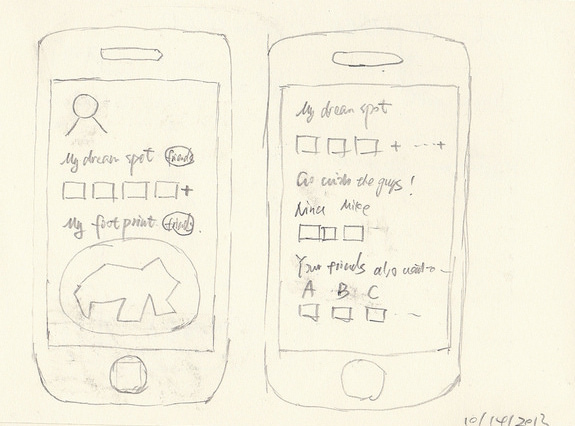 My dream spot friends
+
My foot print friends
My dream spot
+ ... +
Go with the guys!
Nina Mike
Your friends also want to
A B C
10/14/2013